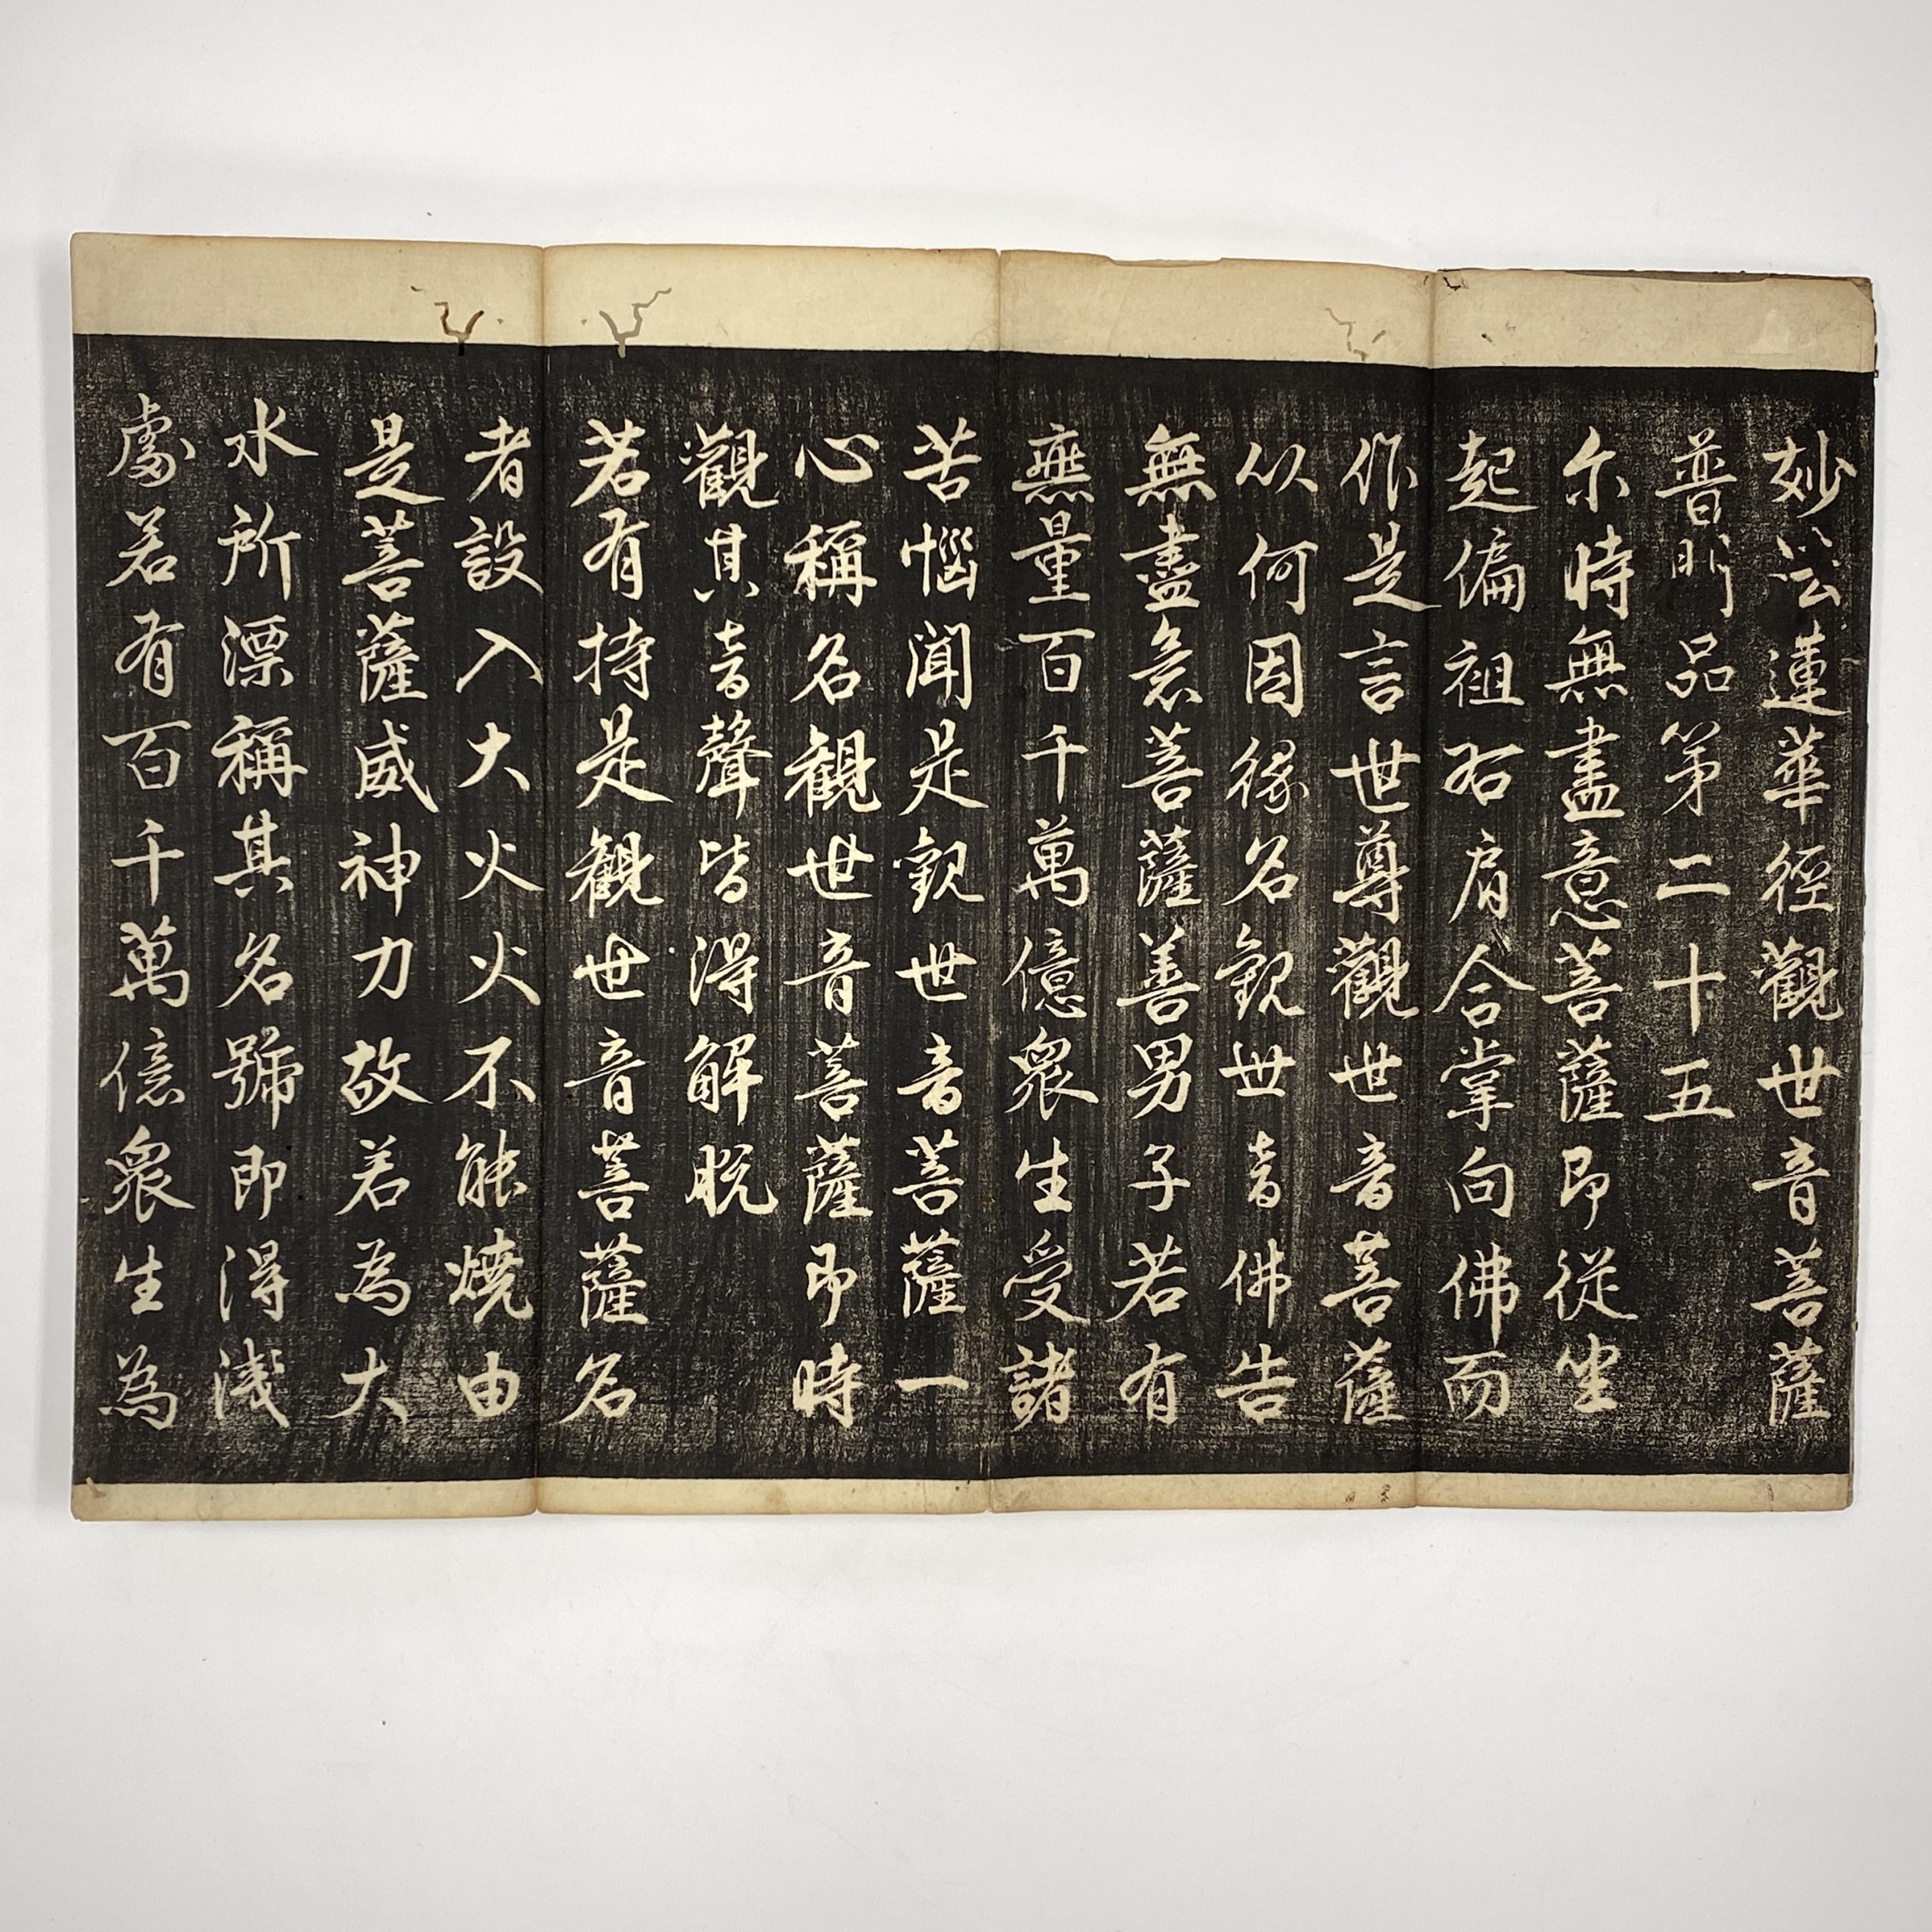 妙法蓮華経觀世音菩薩
普門品第二十五
尓時無盡意菩薩即從坐
起偏袒右肩合掌向佛而
作是言世尊觀世音菩薩
以何因緣名観世音佛告
無盡意菩薩善男子若有
無量百千萬億衆生受諸
苦惱聞是観世音菩薩一
心稱名観世音菩薩即時
觀其音聲皆得解脱
若有持是観世音菩薩名
者設入大火火不能燒由
是菩薩威神力故若為大
水所漂稱其名號即得浅
處若有百千萬億衆生為